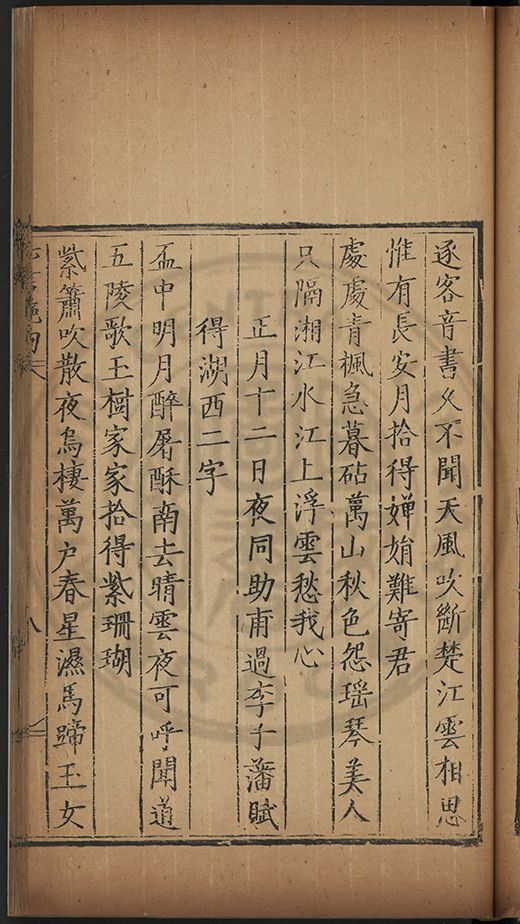 逐客音書久不聞天風吹斷楚江雲相思
惟有長安月拾得嬋娟難寄君
處處青楓急暮砧萬山秋色怨瑶琴美人
只隔湘江水江上浮雲愁我心
正月十二日夜同助甫過李子藩賦
得湖西二字
盃中明月醉屠酥南去晴雲夜可呼聞道
五陵歌玉樹家家拾得紫珊瑚
紫簫吹散夜烏棲萬户春星濕馬蹄玉女
八